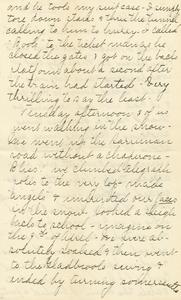 and he took my suit case. I simply
tore down stairs & thru the tunnel
calling to him to hurry. & called
to the ticket man as he
closed the gates & got on the back
platform about a second after
the train had started. Very
thrilling to say the least.
Tuesday afternoon 3 of us
went walking in the snow.
We went up the
road without a chaperone.
Bliss. We climbed telegraph
poles to the very top - made
angels & our faces
in the snow. Hooked a sleigh
back to school - imagine on
the of March. We were ab-
solutely soaked & then went
to the & sewing &
ended by turning somersaults